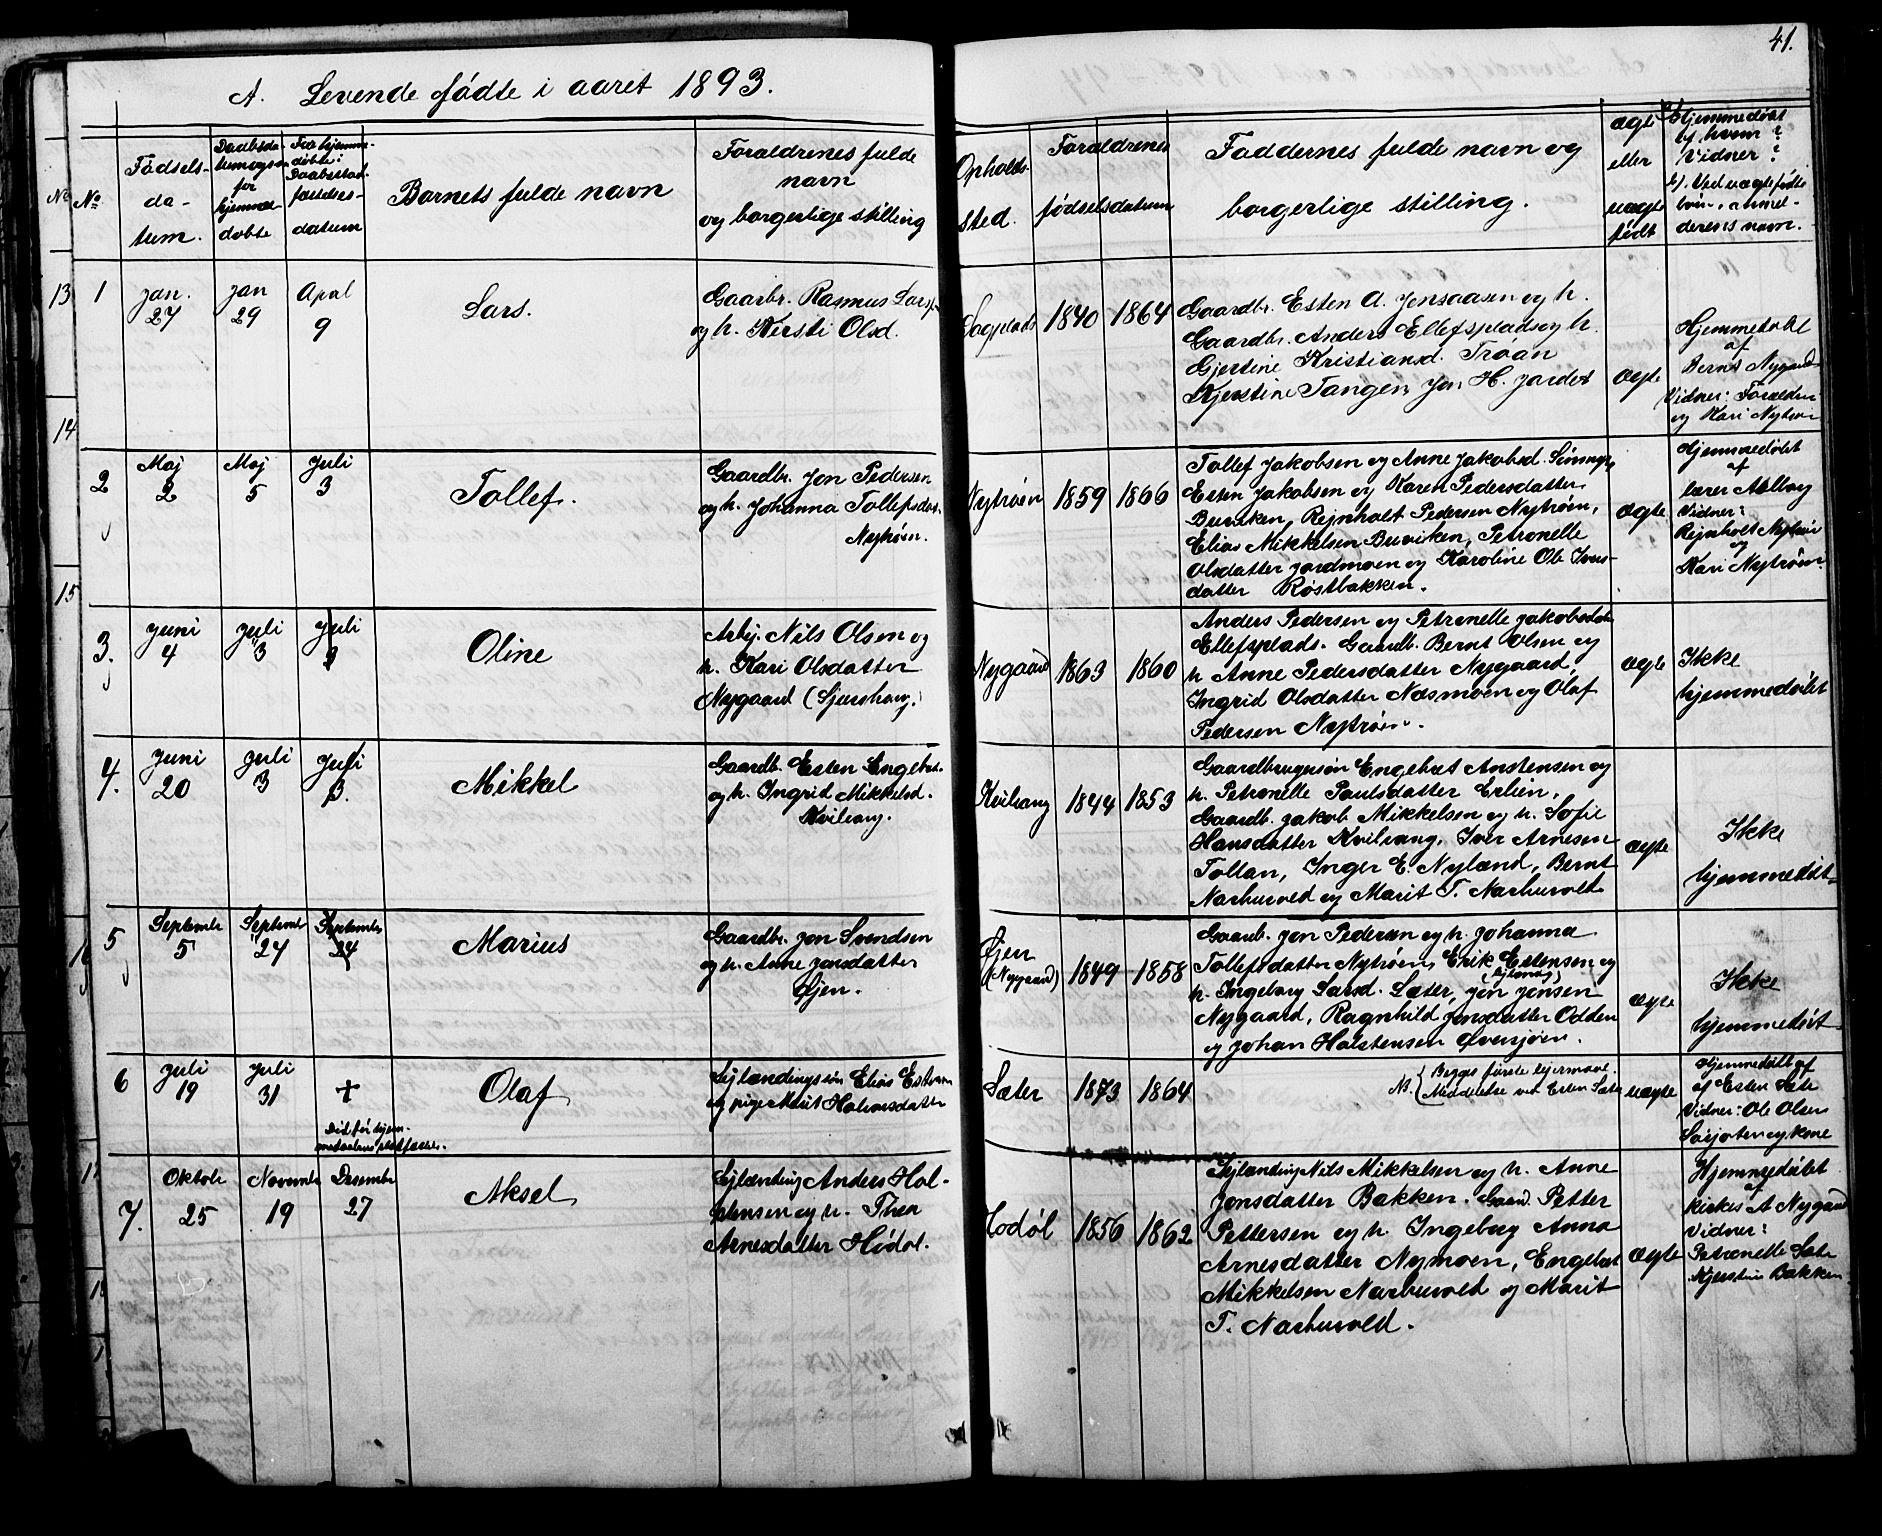 41.
A. Levende fødte i aaret 1893.
No
No
Fødsels-
da-
tum.
Daabsda-
for
hjemme
døbte
For hjemme-
døbte:
Daabsstad-
fæstelses-
datum
Barnets fulde navn
Forældrenes fulde
navn
og borgerlige stilling
Opholds-
sted.
Forældrenes
fødselsdatum
Faddernes fulde navn og
borgerlige stilling.
ægte
eller
uægte
født
a) Hjemmedøbt
af hvem?
Vidner?
b). Ved uægte fødte
børn, anmel-
derens navn.
13
14
15
1
Jan.
27
Jan
29
April
9
Lars.
Gaardbr. Rasmus Larss.
og h. Kersti Olsd.
Sagplads
1840
1864
Gaardbr. Esten A. Jensaasen og h.
Gaardbr. Anders Ellefsplads og h.
Gjertine Kristiansd. Trøan
Kjerstine Tangen, Jon H. Jordet
ægte
Hjemmedøbt
af
Bernt Nygaard
Vidner: Forældre
og Kari Nytrøen
2
Maj
2
Maj
5
Juli
3
Tollef.
Gaardbr. Jon Pedersen
og h. Johanna Tollefsdat.
Nytrøen.
Nytrøen
1859
1866
Tollef Jakobsen og Anne Jakobsd.
Esten Jakobsen og Karen Pedersdatter
Burviken, Rejnholt Pedersen Nytrøen,
Elias Mikkelsen Burviken, Petronelle
Olsdatter Jordmoen og Karoline Ol. Ivers-
datter Røstbakken.
ægte
Hjemmedøbt
af
lærer Aalbog
Vidner:
Rejnholt Nytrøen
og
Kari Nytrøen
3.
Juni
4
Juli
3
Juli
3
Oline
Arbj. Nils Olsen og
h. Kari Olsdatter
Nygaard (Sjurshaug.)
Nygaard
1863
1860
Anders Pedersen og Petronelle Jakobsdat
Ellefsplads. Gaardb. Bernt Olsen og
h. Anne Pedersdatter Nygaard,
Ingrid Olsdatter Næsmoen og Olaf
Pedersen Nytrøen.
ægte
Ikke
hjemmedøbt
4.
Juni
20
Juli
3
Juli
3.
Mikkel
Gaardb. Esten Engebr.
og h. Ingrid Mikkelsd.
Kvilvang.
Kvilvang
1844
1853
Gaardbrugersøn Engebret Anstensen og
h. Petronelle Paulsdatter Erlien,
Gaardb. Jakob Mikkelsen og h. Sofie
Hansdatter Kvilvang, Iver Arnesen
Tollan, Inger E. Nyland, Bernt
Narbuvold og Marit T. Narbuvold
ægte
Ikke
hjemmedøbt
5
September
5
September
24
September
24
Marius
Gaardbr. Jon Svendsen
og h. Anne Jonsdatter
Øjen.
Øjen
(Nygaard)
1849
1858
Gaardb. Jon Pedersen og h. Johanna
Tollefsdatter Nytrøen, Erik Estensen og
h. Ingeborg Larsd. Sæter, Jon Jonsen
Nygaard, Ragnhild Jonsdatter Odden
og Johan Halstensen Øversjøen.
ægte
Ikke
hjemmedøbt
6
Juli
19
Juli
31
+
Død før hjem-
medaabens stadfæstel.
Olaf
Lejlændingssøn Elias Estensen
og pige Marit Halvorsdatter
Sæter
1873
1864
NB. Begges første lejermaal.
Meddelelse ved Esten Sæter
uægte
Hjemmedøbt af
af Esten Sæter
Vidner: Ole Olsen
7.
Oktober
25
November
19
Desember
27
Aksel
Lejlænding Anders Hal-
stensen og h. Thea
Arnesdatter Hodøl.
Hodøl
1856
1862
Lejlænding Nils Mikkelsen og h. Anne
Jonsdatter Bakken. Gaard. Petter
Pettersen og h. Ingebog Anna
Arnesdatter Nymoen, Engebret
Mikkelsen Narbuvold og Marit
T. Narbuvold.
ægte
Hjemmedøbt
af
kirkes. A Nygaard
Vidner:
Petronelle Sæter
Kjerstine Bakken